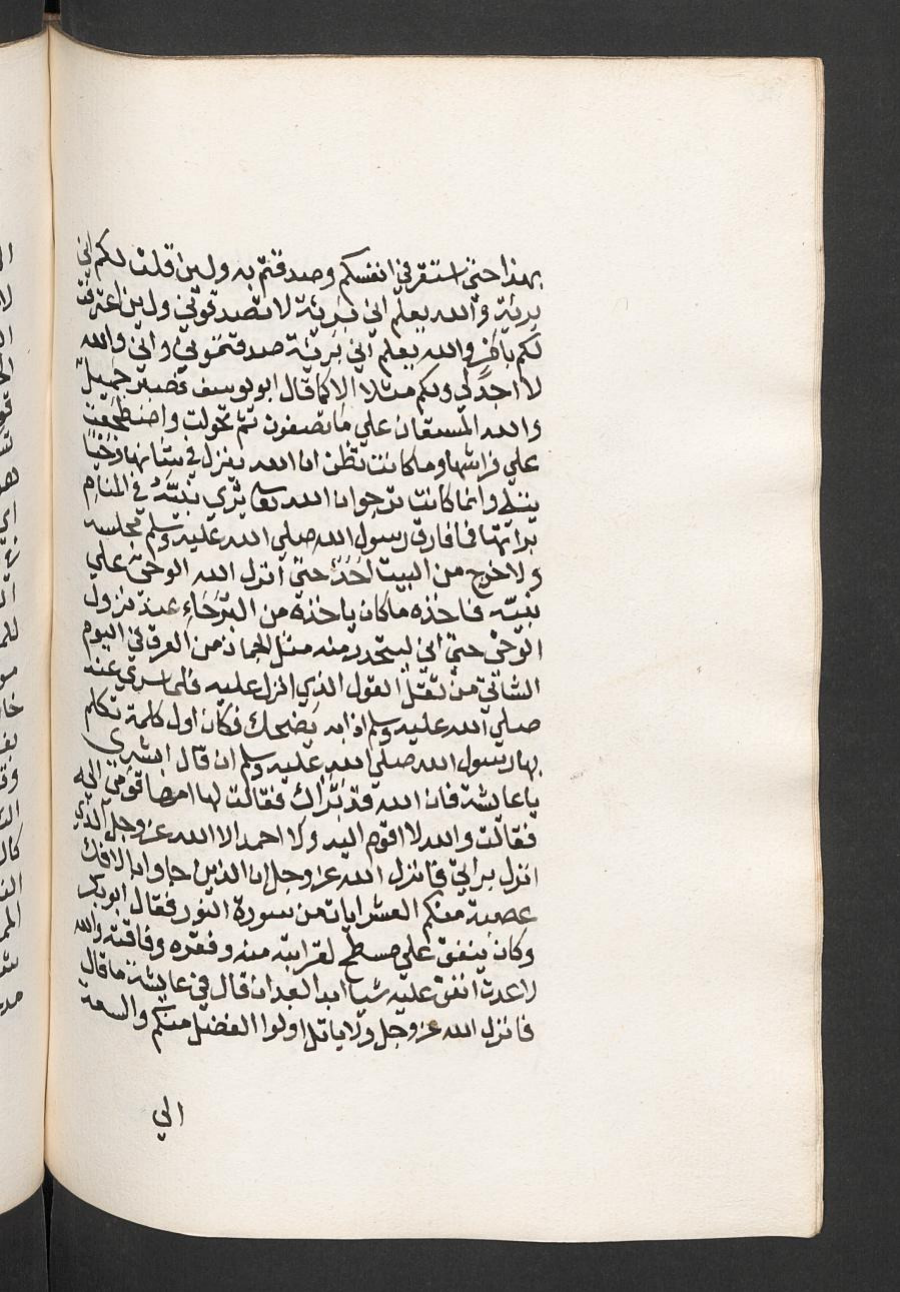 بهذا حتي استقر في انفسكم وصدقتم به ولين قلت لكم اني
بريّة والله يعلم اني بريّة لا تصدقوني ولين اعترفت
لكم بامر والله يعلم اني بريّة صدقتموني واني والله
لا اجد لي ولكم مثلا الا كما قال ابو يوسف فصبر جميل
والله المستعان علي ما تصفون ثم تحولت واضطجعت
علي فراشها وما كانت تظن ان الله ينزل في شانها وحيا
يتلي وانما كانت ترجوا ان الله تعا يري نبيّه في المنام
براتها فما فارق رسول الله صلي الله عليه وسلم مجلسه
ولا خرج من البيت احد حتي انزل الله الوحي علي
نبيّه فاخذه ما كان ياخذه من البرحاء عند نزول
الوحي حتي اني ليتحدر منه مثل الجمان من العرق في اليوم
الشاتي من ثقل القول الذي انزل عليه فلما سري عنه
صلي الله عليه وسلم اذا به يضحك فكان اول كلمة تكلم
بها رسول الله صلي الله عليه وسلم ان قال ابشري
يا عايشة فان الله قد برّاك فقالت لها امها قومي اليه
فقالت والله لا اقوم اليه ولا احمد الا الله عز وجل الذي
انزل براتي فانزل الله عز وجل ان الذين جاوا بالافك
عصبة منكم العشر ايات من سورة النور فقال ابو بكر
وكان ينفق علي مسطح لقرابته منه وفقره وفاقته والله
لا عدت انفق عليه شيا ابدا بعد ان قال في عايشة ما قال
فانزل الله عز وجل ولا ياتل اولوا الفضل منكم والسعة
الي